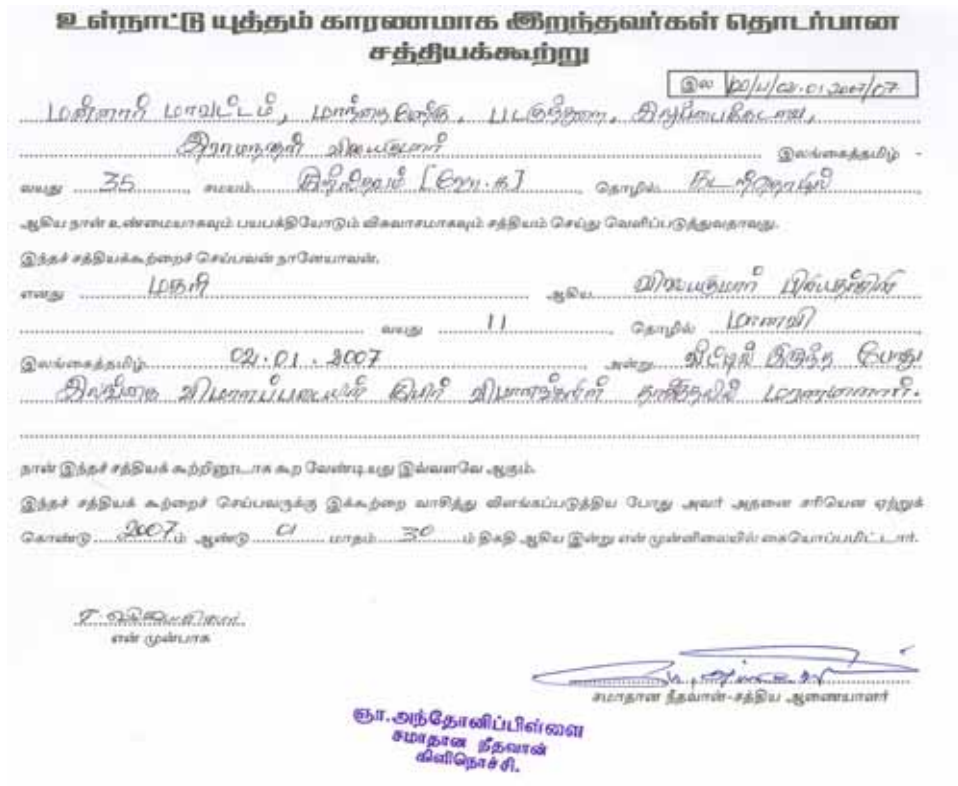 உள்நாட்டு யுத்தம் காரணமாக இறந்தவர்கள் தொடர்பான
சத்தியக்கூற்று
இல 02.01.2007/07
மன்னார் மாவட்டம், மாந்தை மேற்கு, படகுத்துறை, இலுப்பைக்கடவை,
இராமநாதன் விஜயகுமார் இலங்கைத்தமிழ் -
வயது 35 சமயம் கிறிஸ்தவம் [றோ.க] தொழில் கடற்தொழில்
ஆகிய நான் உண்மையாகவும் பயபக்தியோடும் விசுவாசமாகவும் சத்தியம் செய்து வெளிப்படுத்துவதாவது.
இந்தச் சத்தியக்கூற்றைச் செய்பவன் நானேயாவன்.
எனது மகள் ஆகிய விஜயகுமார்
வயது 11 தொழில் மாணவி
இலங்கைத்தமிழ் 02.01.2007 அன்று வீட்டில் இருந்த போது
இலங்கை விமானப்படையின் கிபிர் விமானங்களின் தாக்குதலில் மரணமானார்.
நான் இந்தச் சத்தியக் கூற்றினூடாக கூற வேண்டியது இவ்வளவே ஆகும்.
இந்தச் சத்தியக் கூற்றைச் செய்பவருக்கு இக்கூற்றை வாசித்து விளங்கப்படுத்திய போது அவர் அதனை சரியென ஏற்றுக்
கொண்டு 2007ம் ஆண்டு 01 மாதம் 30 ம் திகதி ஆகிய இன்று என் முன்னிலையில் கையொப்பமிட்டார்.
என் முன்பாக
சமாதான நீதவான்-சத்திய ஆணையாளர்
ஞா.அந்தோனிப்பிள்ளை
சமாதான நீதவான்
கிளிநொச்சி.